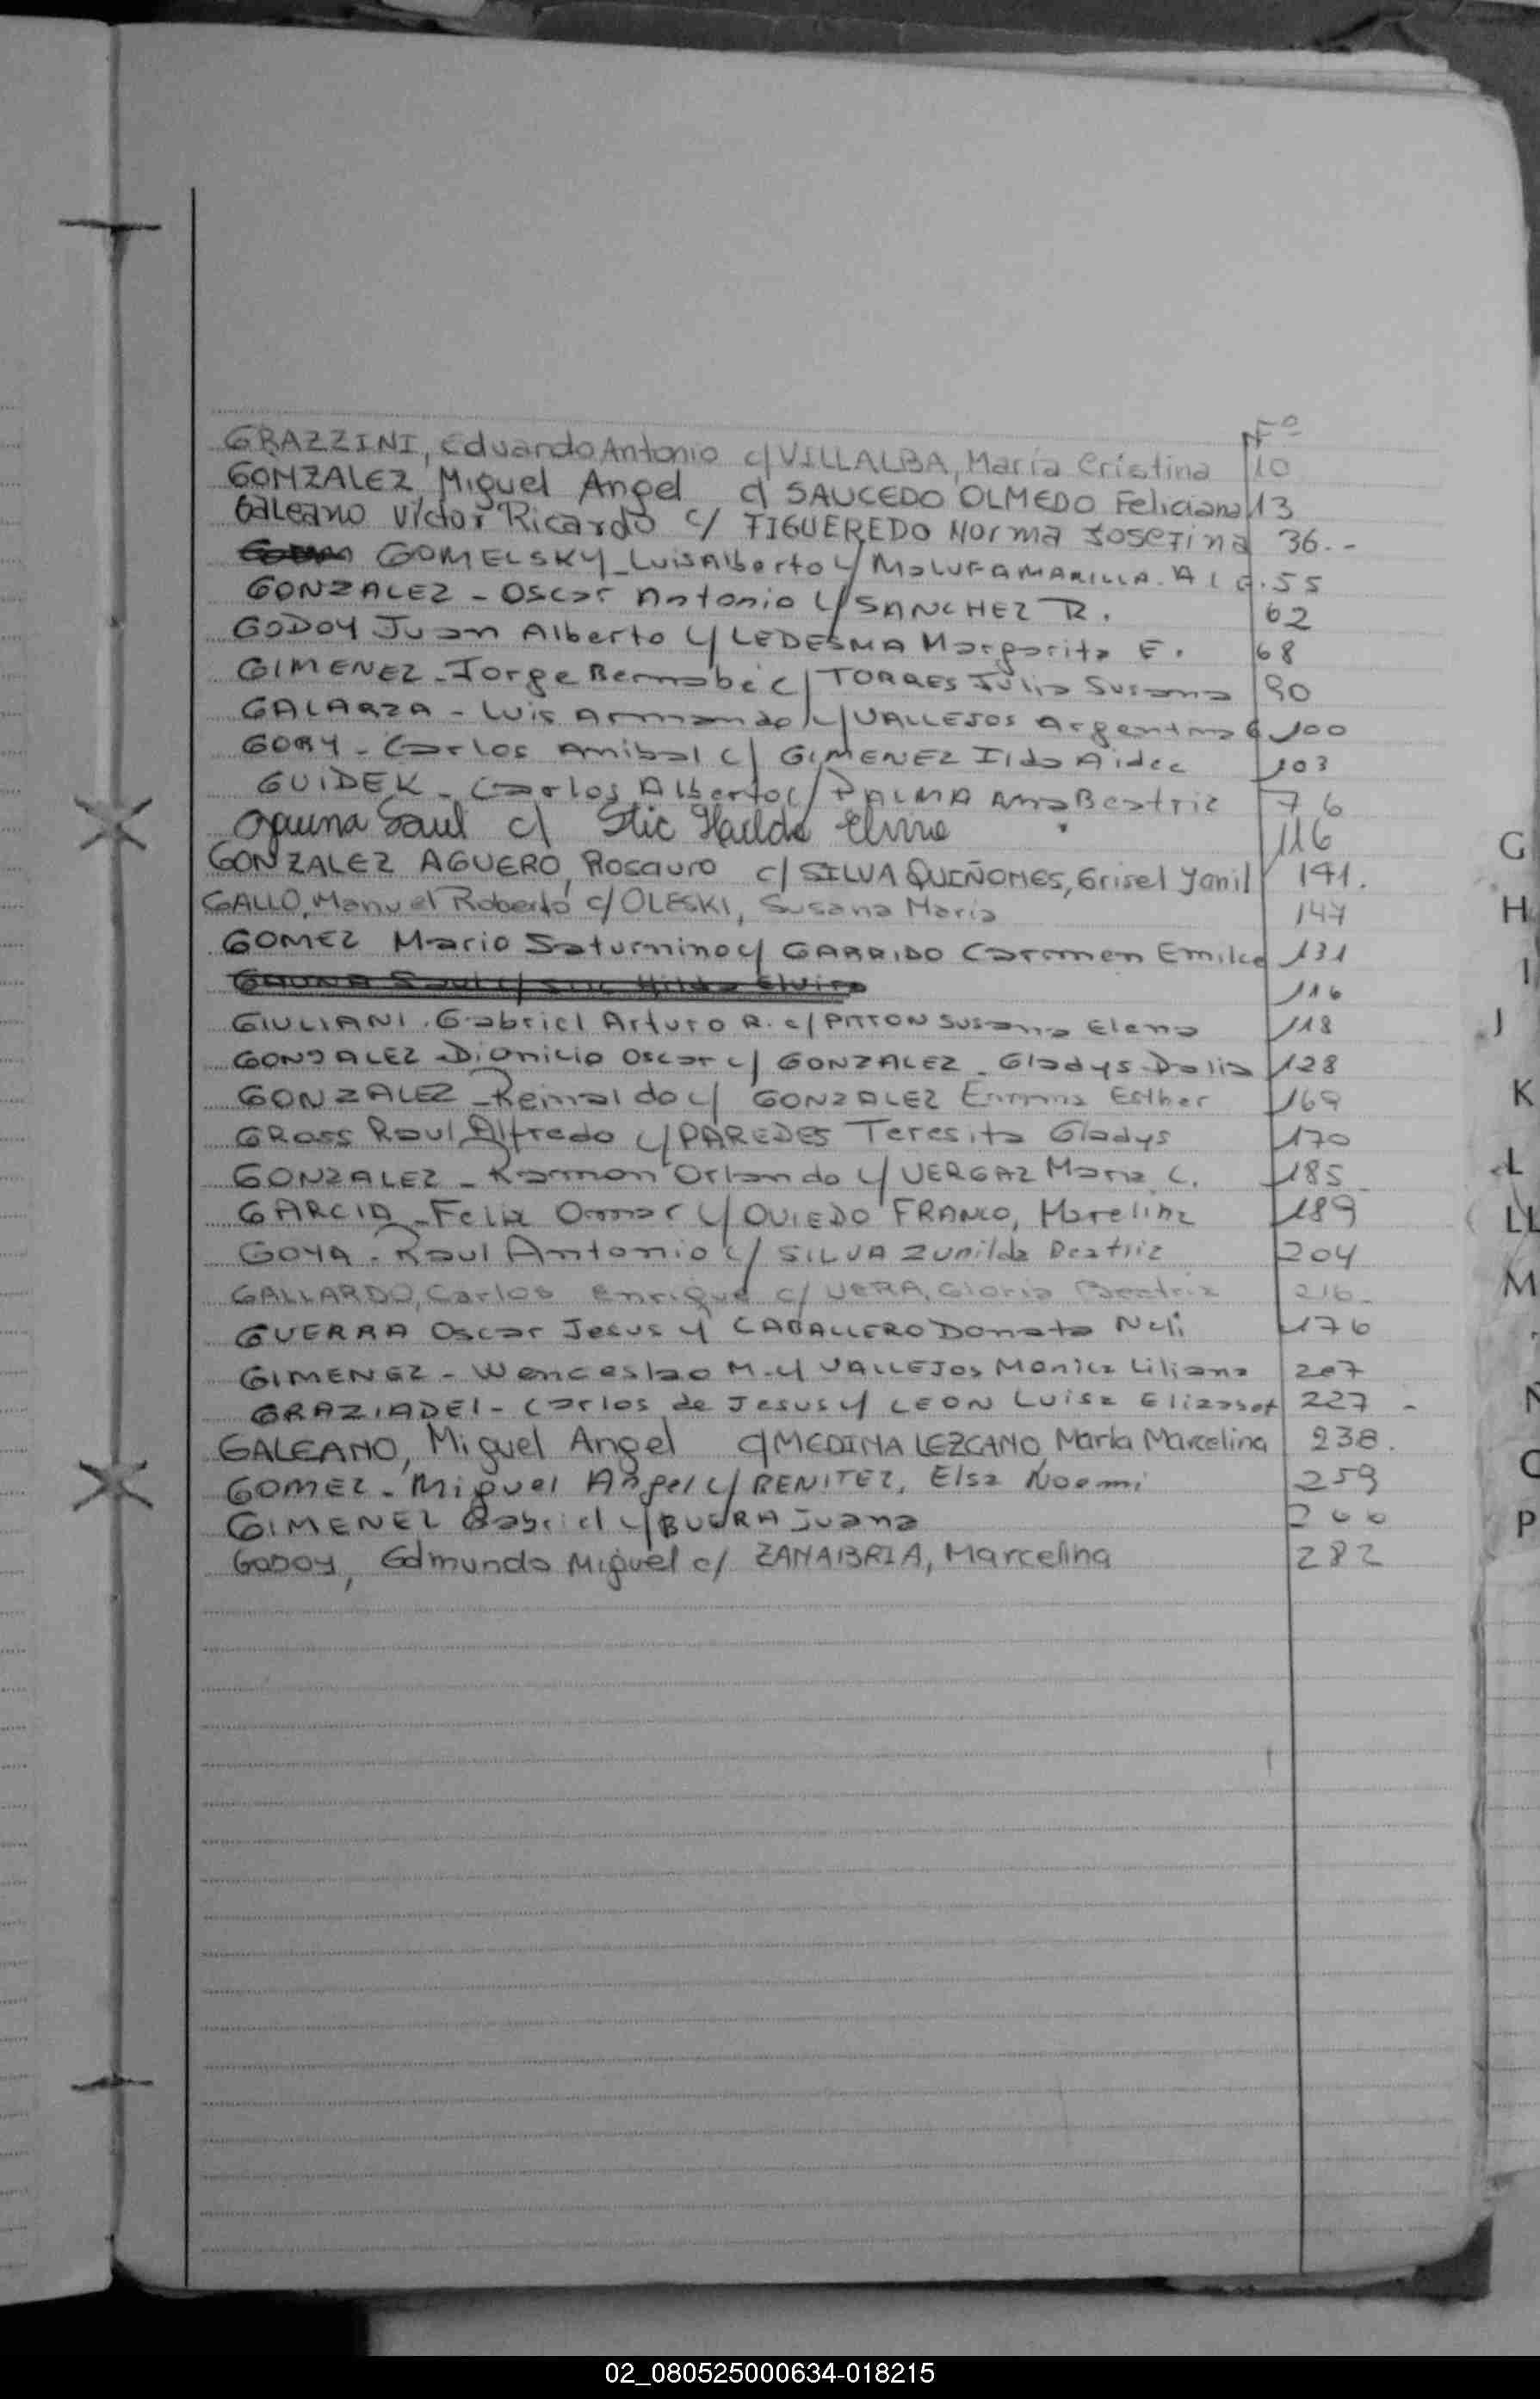 Fº
GRAZZINI, Eduardo Antonio c/ VILLALBA, María Cristina 10
GONZALEZ Miguel Angel c/ SAUCEDO OLMEDO Feliciana 13
Galeano Victor Ricardo c/ FIGUEREDO Norma Josefina 36.-
GOMELSKY - Luis Alberto c/ MALUF AMARILLA. A 55
GONZALEZ - Oscar Antonio c/ SANCHEZ R. 62
GODOY Juan Alberto c/ LEDESMA Margarita E. 68
GIMENEZ - Jorge Bernabe c/ TORRES Julia Susana 90
GALARZA - Luis Armando c/ VALLEJOS Argentina G 100
GORY - Carlos Anibal c/ GIMENEZ Ilda Aidee 103
GUIDEK - Carlos Alberto c/ PALMA Ana Beatriz 76
Gauna Saul c/ Stic Hailda Elvira 116
GONZALEZ AGUERO, Rosauro c/ SILVA QUIÑONES, Grisel Yanil 141.
GALLO, Manuel Roberto c/ OLESKI, Susana María 147
GOMEZ Mario Saturnino c/ GARRIDO Carmen Emilce 131
GAUNA Saul c/ Stic Hilda Elvira 116
GIULIANI. Gabriel Arturo R. c/ PITTON Susana Elena 118
GONZALEZ - Dionicio Oscar c/ GONZALEZ - Gladys Dalia 128
GONZALEZ - Reinaldo c/ GONZALEZ Emma Esther 169
GROSS Raul Alfredo c/ PAREDES Teresita Gladys 170
GONZALEZ - Ramon Orlando c/ VERGAZ Maria C. 185
GARCIA - Felix Omar c/ OVIEDO FRANCO, Marelina 189
GOYA - Raul Antonio c/ SILVA Zunilda Beatriz 204
GALLARDO, Carlos Enrique c/ VERA, Gloria Beatriz 216-
GUERRA Oscar Jesus c/ CABALLERO Donata Neli 176
GIMENEZ - Wenceslao M. c/ VALLEJOS Monica Liliana 207
GRAZIADEI - Carlos de Jesus c/ LEON Luisa Elizabet 227 -
GALEANO, Miguel Angel c/ MEDINA LEZCANO, María Marcelina 238.
GOMEZ - Miguel Angel c/ BENITEZ, Elsa Noemi 259
GIMENEZ Gabriel c/ BUERA Juana 260
GODOY, Edmundo Miguel c/ ZANABRIA, Marcelina 282
G
H
I
J
K
L
LL
M
N
O
P
02_080525000634-018215